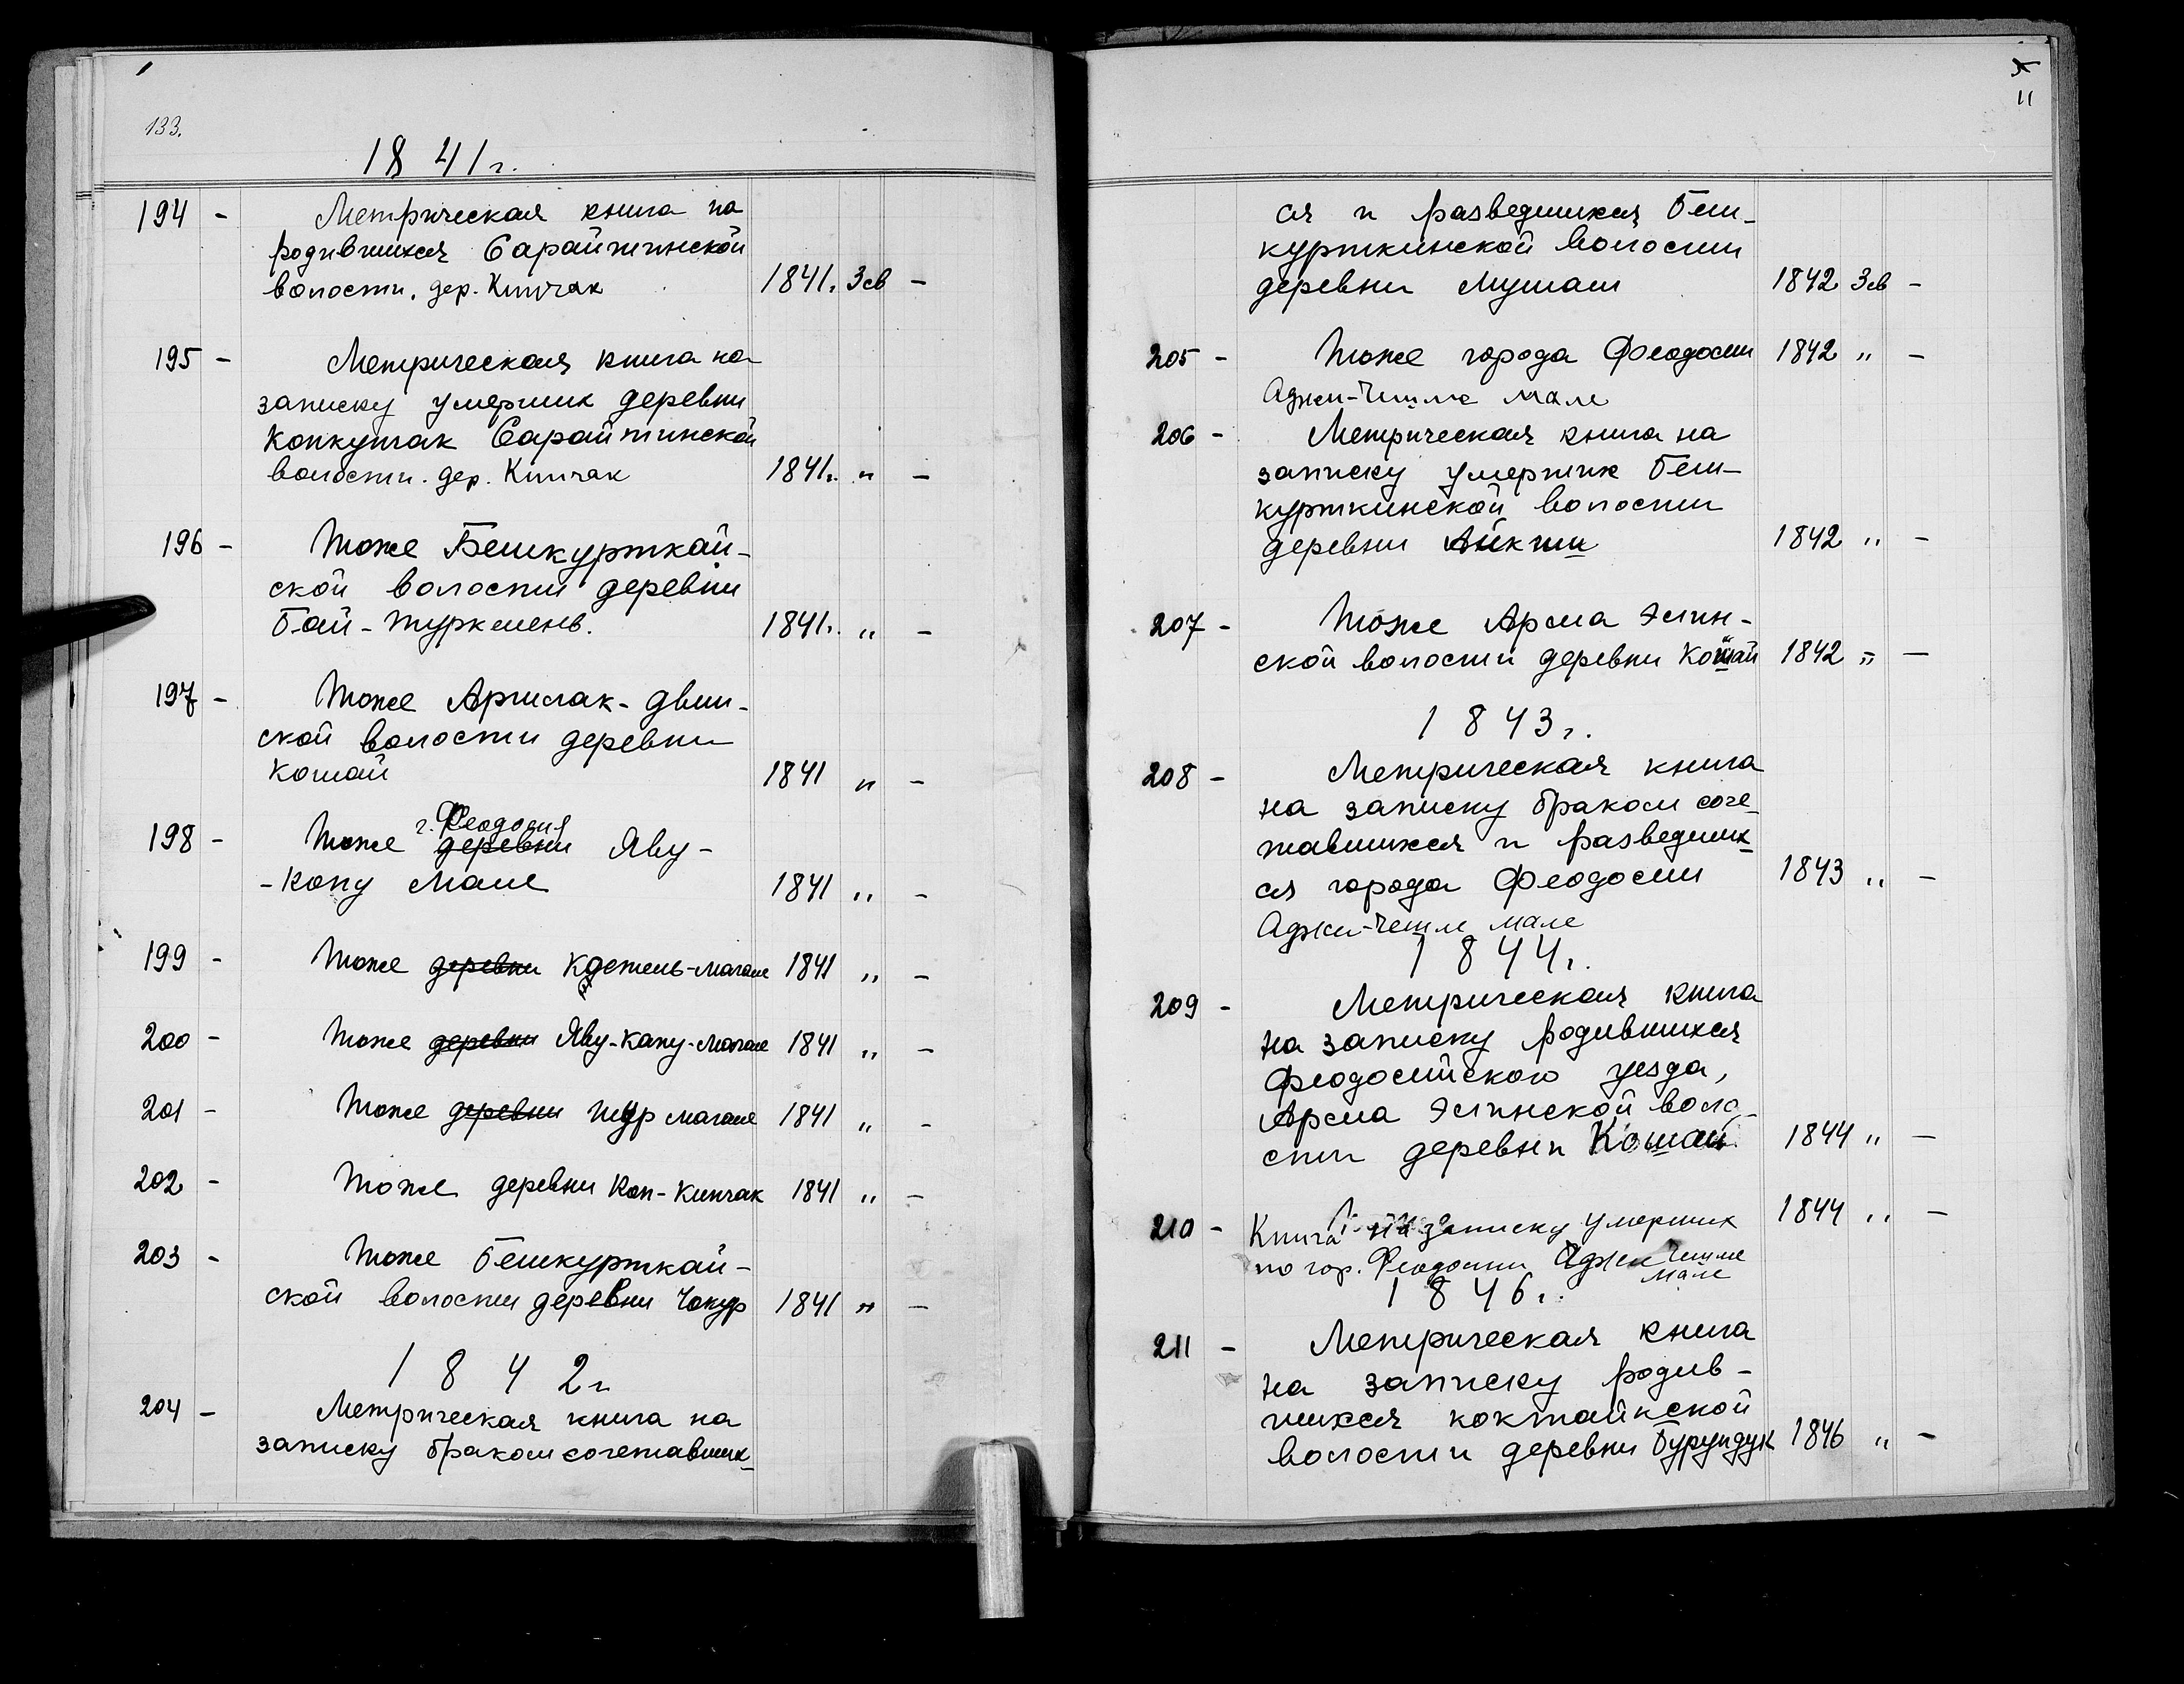 133.
1841г.
194 - Метрическая книга на
родившихся Сарайтинской
волости. дер. Кипчак 1841. Зсв -
195 - Метрическая книга на
записку умерших деревни
Копкутак Сарайтинской
волости. дер. Кипчак 1841г. " -
196 - Тоже Бешкурткай-
ской волости деревни
Бай-туркменъ. 1841г. " -
197 - Тоже Аргилак-двин-
ской волости деревни
Кошай 1841 " -
г. Феодосия
198 - Тоже деревни Яву-
-Копу Мале 1841 " -
199 - Тоже деревни 1841 " -
200 - Тоже деревни Яву-Капу-Магале 1841 " -
201 - Тоже деревни магале 1841 " -
202 - Тоже деревни Коп-Кипчак 1841 " -
203 - Тоже Бешкурткай-
ской волости деревни Чокур 1841 " -
1842г
204 - Метрическая книга на
записку браком сочетавших-
11
ся и разведшихся Беш-
курткинской волости
деревни Мушаш 1842 Зсв -
205 - Тоже города Феодосии 1842 " -
Аджи-Чешме мале
206 - Метрическая книга на
записку умерших Беш-
курткинской волости
деревни 1842 " -
207 - Тоже Арма Элин-
ской волости деревни Кошай 1842 " -
1843г.
208 - Метрическая книга
на записку браком соче-
тавшихся и разведших-
ся города Феодосии 1843 " -
Аджи-Чешме мале
1844г.
209 - Метрическая книга
на записку родившихся
Феодосийского уезда,
Арма Элинской воло-
сти деревни Кошай 1844 " -
210 - Книга на записку умерших 1844 " -
по гор. Феодосии Аджи Чешме
мале
1846г.
211 - Метрическая книга
на записку родив-
шихся коктайкской
волости деревни Бурундук 1846 " -